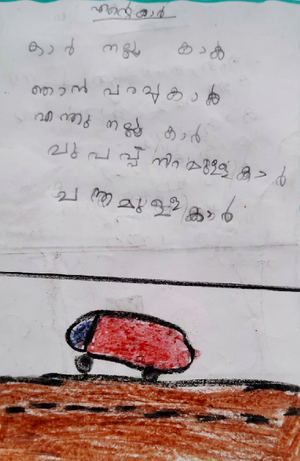 എന്റെകാർ
കാർ നല്ല കാർ
ഞാൻ പറപ്പുകാർ
എന്തു നല്ല കാർ
ചു പപ്പ് നിറമുള്ള കാർ
ചന്തമുള്ള കാർ